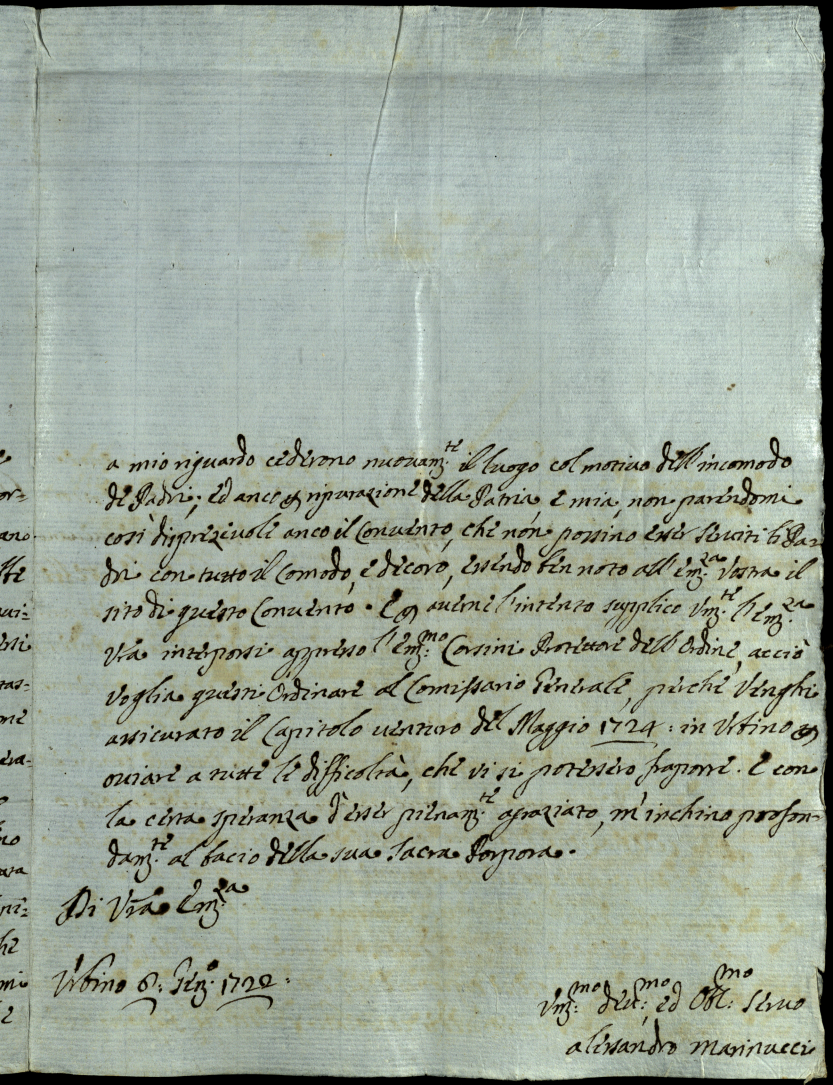 a mio riguardo cederono nuovam.te il luogo col motivo dell'incomodo
de Padri; ed anco per riparazione della Patria, e mia, non parendomi
così disprezevole anco il Convento, che non possino esser serviti li Pa-
dri con tutto il Comodo, e decoro, essendo ben noto all'Em.za Vostra il
sito di questo Convento. E per averne l'intento supplico Um.te l'Em.za
Vra interporsi appresso l'Em.mo Corsini Protettore dell'Ordine, acciò
voglia questi Ordinare al Comissario Generale, perché venghi
assicurato il Capitolo venturo del Maggio 1724: in Urbino per
oviare a tutte le difficoltà, che vi si potessero fraporre. E con
la certa speranza d'esser pienam.te agraziato, m'inchino profon-
dam.te al bacio della sua Sacra Porpora.
Di Vra Em.za
Urbino 8: Gen.o 1722:
Um.mo dev.mo, ed Obl.mo servo
Alessandro Marinucci
or-
ano
tte
ui-
ersi
ras-
me
era-
no
ara
he
mi
e